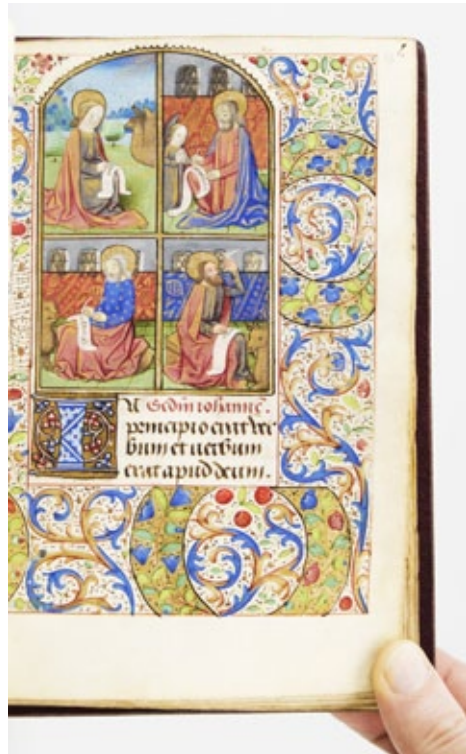 N Sedm̄ iohannē.
principio erat ver
bum et uerbum
erat apud deum.